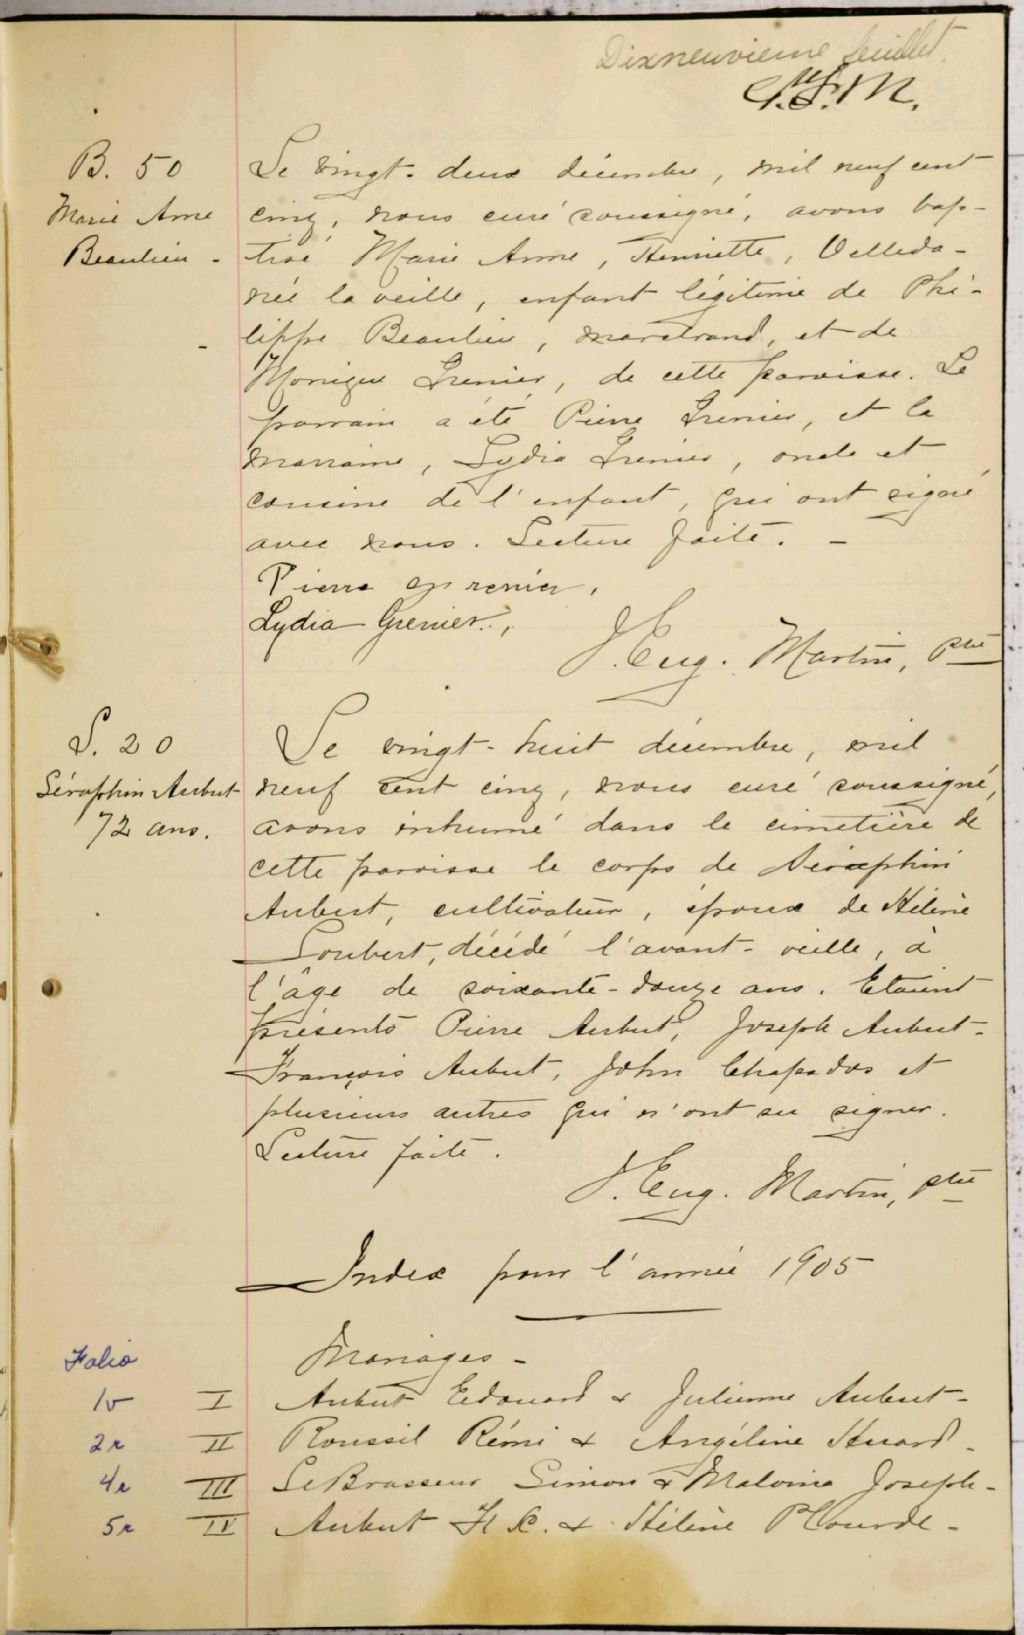 Dixneuvieme feuillet.
B. 50
Marie Anne
Beaulieu -
Le vingt-deux décembre, mil neuf cent
cinq, nous curé soussigné, avons bap-
tisé Marie Anne, Henriette, Velleda -
née la veille, enfant légitime de Phi-
lippe Beaulieu, marchand, et de
Monique Grenier, de cette paroisse. Le
parrain a été Pierre Grenier, et la
marraine, Lydia Grenier, oncle et
cousine de l'enfant, qui ont signé
avec nous. Lecture faite. -
Pierre grenier.
Lydia Grenier.
J. Eug. Martin, Ptre
S. 20
Séraphin Aubut
72 ans.
Le vingt-huit décembre, mil
neuf cent cinq, nous curé soussigné,
avons inhumé dans le cimetière de
cette paroisse le corps de Séraphin
Aubut, cultivateur, époux de Hélène
Loubert, décédé l'avant-veille, à
l'âge de soixante-douze ans. Etaient
présents Pierre Aubut, Joseph Aubut -
François Aubut, John Chapados et
plusieurs autres qui n'ont su signer.
Lecture faite.
J. Eug. Martin, ptre
Index pour l'année 1905
Folio
Mariages -
1v I Aubut Edouard & Julienne Aubut -
2r II Roussil Rémi & Angéline Huard -
4r III LeBrasseur Simon & Malvina Joseph -
5r IV Aubut F. X. & Hélène Plourde -